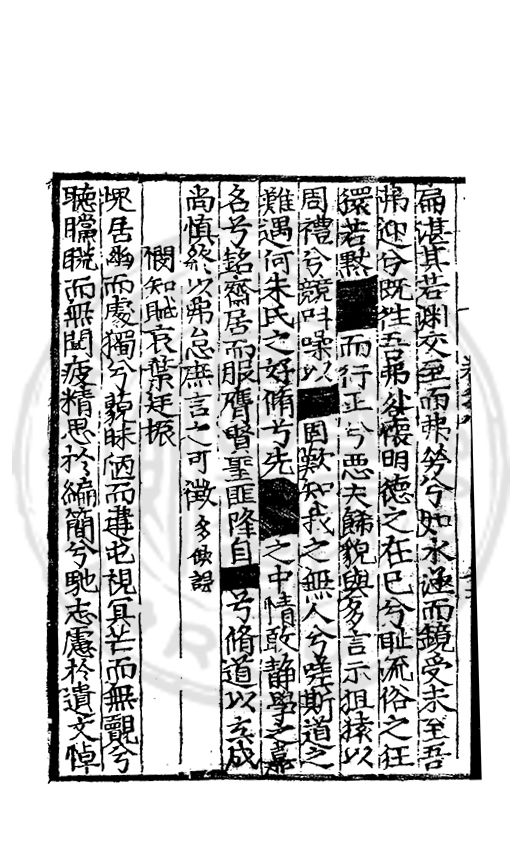 扁湛其若淵交至而弗勞兮如水涵而鏡受未至吾
弗迎兮既徃吾弗咎懷明德之在已兮耻流俗之狂
獧若黙而行正兮惡夫餙貌與多言示狙猿以
周禮兮競呌噪以固歎知我之無人兮嗟斯道之
難遇何朱氏之好脩兮先之中情敢靜學之嘉
名兮銘齋居而服膺賢聖匪降自兮脩道以玄成
尚慎終以弗怠庶言之可徵多缺誤
憫知賦哀葉廷振
塊居幽而處獨兮藐昧陋而遘屯視冥芒而無覩兮
聽而無聞疲精思於編簡兮馳志慮於遺文悼